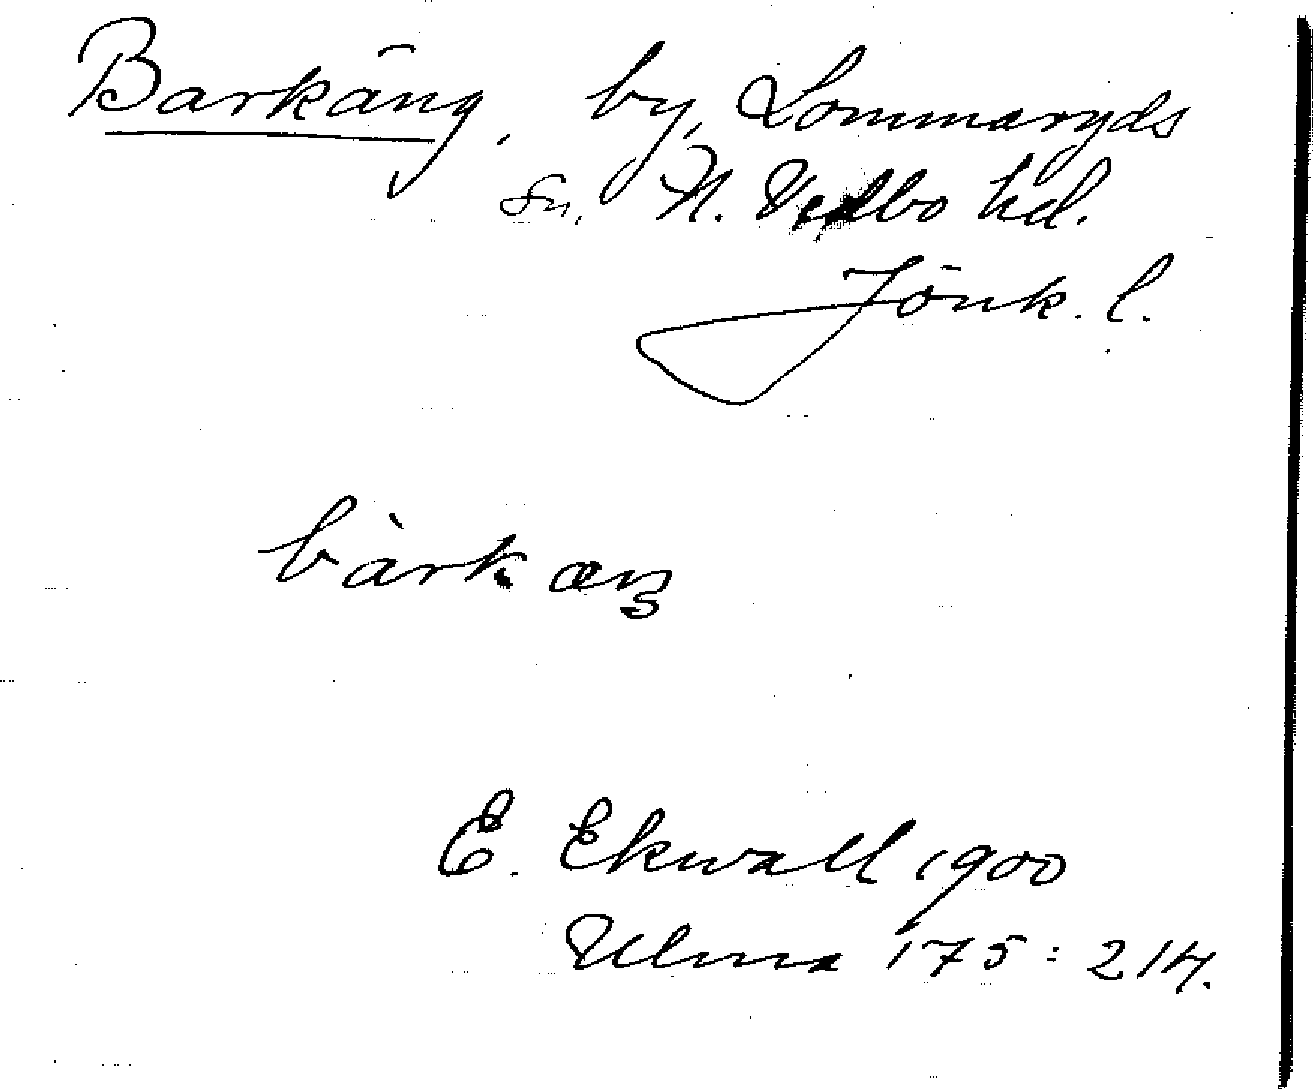 Barkäng, by, Lommaryds
sn. N. Vedbo hd.
Jönk. l.
bàrkæŋ
E. Ekwall 1900
Ulma 175: 214.